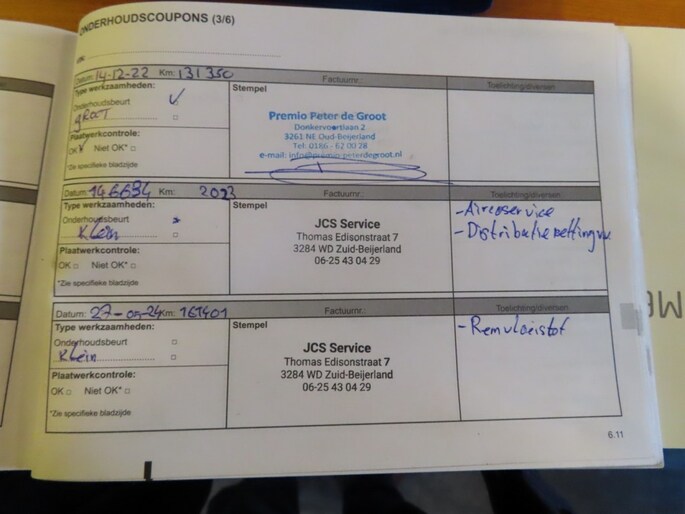 ONDERHOUDSCOUPONS (3/6)
VIN:
Datum: 14-12-22 Km: 131350 Factuurnr.: Toelichting/diversen
Type werkzaamheden:
Onderhoudsbeurt
GROOT
Plaatwerkcontrole:
OK Niet OK*
*Zie specifieke bladzijde
Stempel
Premio Peter de Groot
Donkervoortlaan 2
3261 NE Oud-Beijerland
Tel: 0186 - 62 00 28
e-mail: info@premio-peterdegroot.nl
Datum: 146634 Km: 2023 Factuurnr.: Toelichting/diversen
Type werkzaamheden:
Onderhoudsbeurt
Klein
Plaatwerkcontrole:
OK Niet OK*
*Zie specifieke bladzijde
Stempel
JCS Service
Thomas Edisonstraat 7
3284 WD Zuid-Beijerland
06-25 43 04 29
- Aircoservice
- Distributieketting
Datum: 27-09-24 Km: 161401 Factuurnr.: Toelichting/diversen
Type werkzaamheden:
Onderhoudsbeurt
Klein
Plaatwerkcontrole:
OK Niet OK*
*Zie specifieke bladzijde
Stempel
JCS Service
Thomas Edisonstraat 7
3284 WD Zuid-Beijerland
06-25 43 04 29
- Remvloeistof
6.11